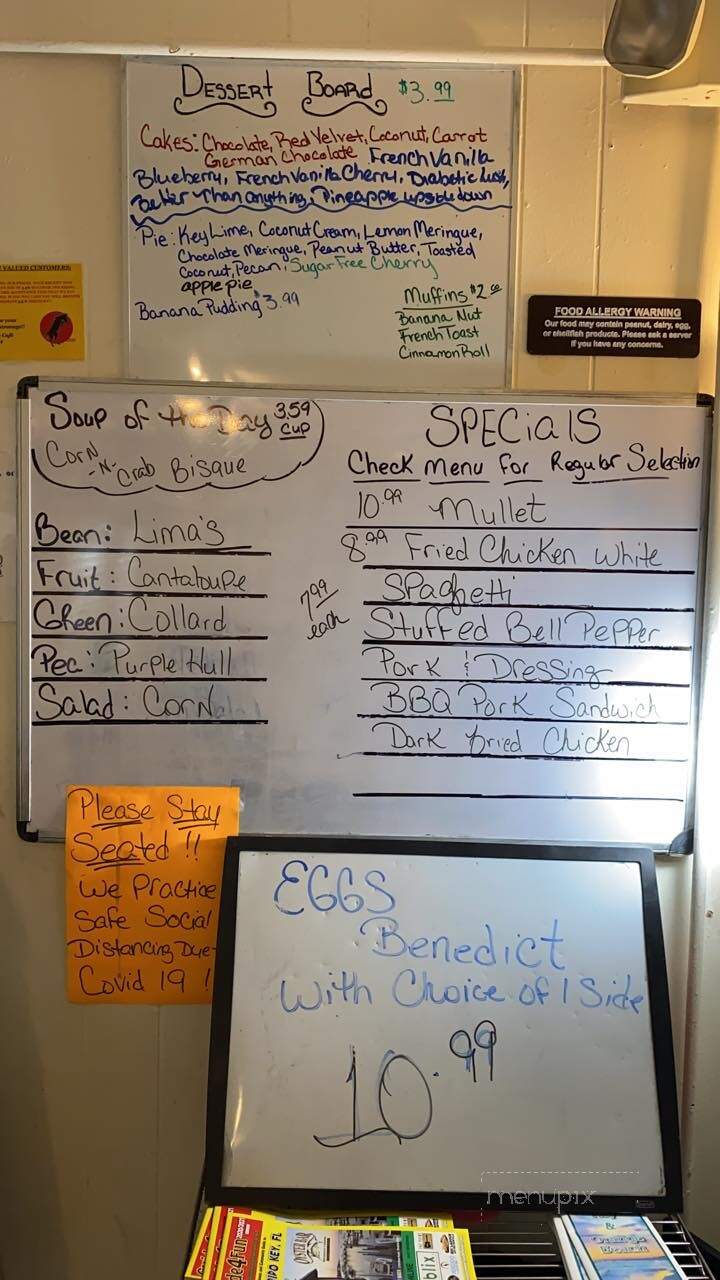 DESSERT BOARD $3.99
Cakes: Chocolate, Red Velvet, Coconut, Carrot
German Chocolate French Vanilla
Blueberry, French Vanilla Cherry, Diabetic Lush,
Better Than anything, Pineapple upside down
Pie: Key Lime, Coconut Cream, Lemon Meringue,
Chocolate Meringue, Peanut Butter, Toasted
Coconut, Pecan, Sugar Free Cherry
apple pie
Banana Pudding $3.99
Muffins $2.00
Banana Nut
French Toast
Cinnamon Roll
VALUED CUSTOMERS:
FOOD ALLERGY WARNING
Our food may contain peanut, dairy, egg,
or shellfish products. Please ask a server
if you have any concerns.
Soup of the Day 3.59
CUP
Corn
-N- Crab Bisque
Bean: Lima's
Fruit: Cantaloupe
Green: Collard
Pea: Purple Hull
Salad: Corn
SPECIALS
Check Menu For Regular Selection
10.99 Mullet
8.99 Fried Chicken White
7.99
each
Spaghetti
Stuffed Bell Pepper
Pork & Dressing
BBQ Pork Sandwich
Dark Fried Chicken
Please Stay
Seated !!
We Practice
Safe Social
Distancing Due
Covid 19 !
EGGS
Benedict
With Choice of 1 Side
10.99
menupix
de4Fun